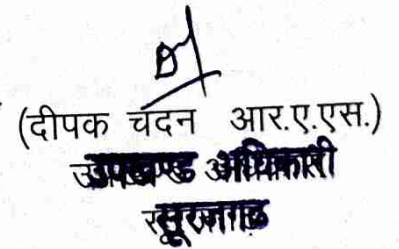 (दीपक चंदन आर.ए.एस.)
उपखण्ड अधिकारी
सूरजगढ़